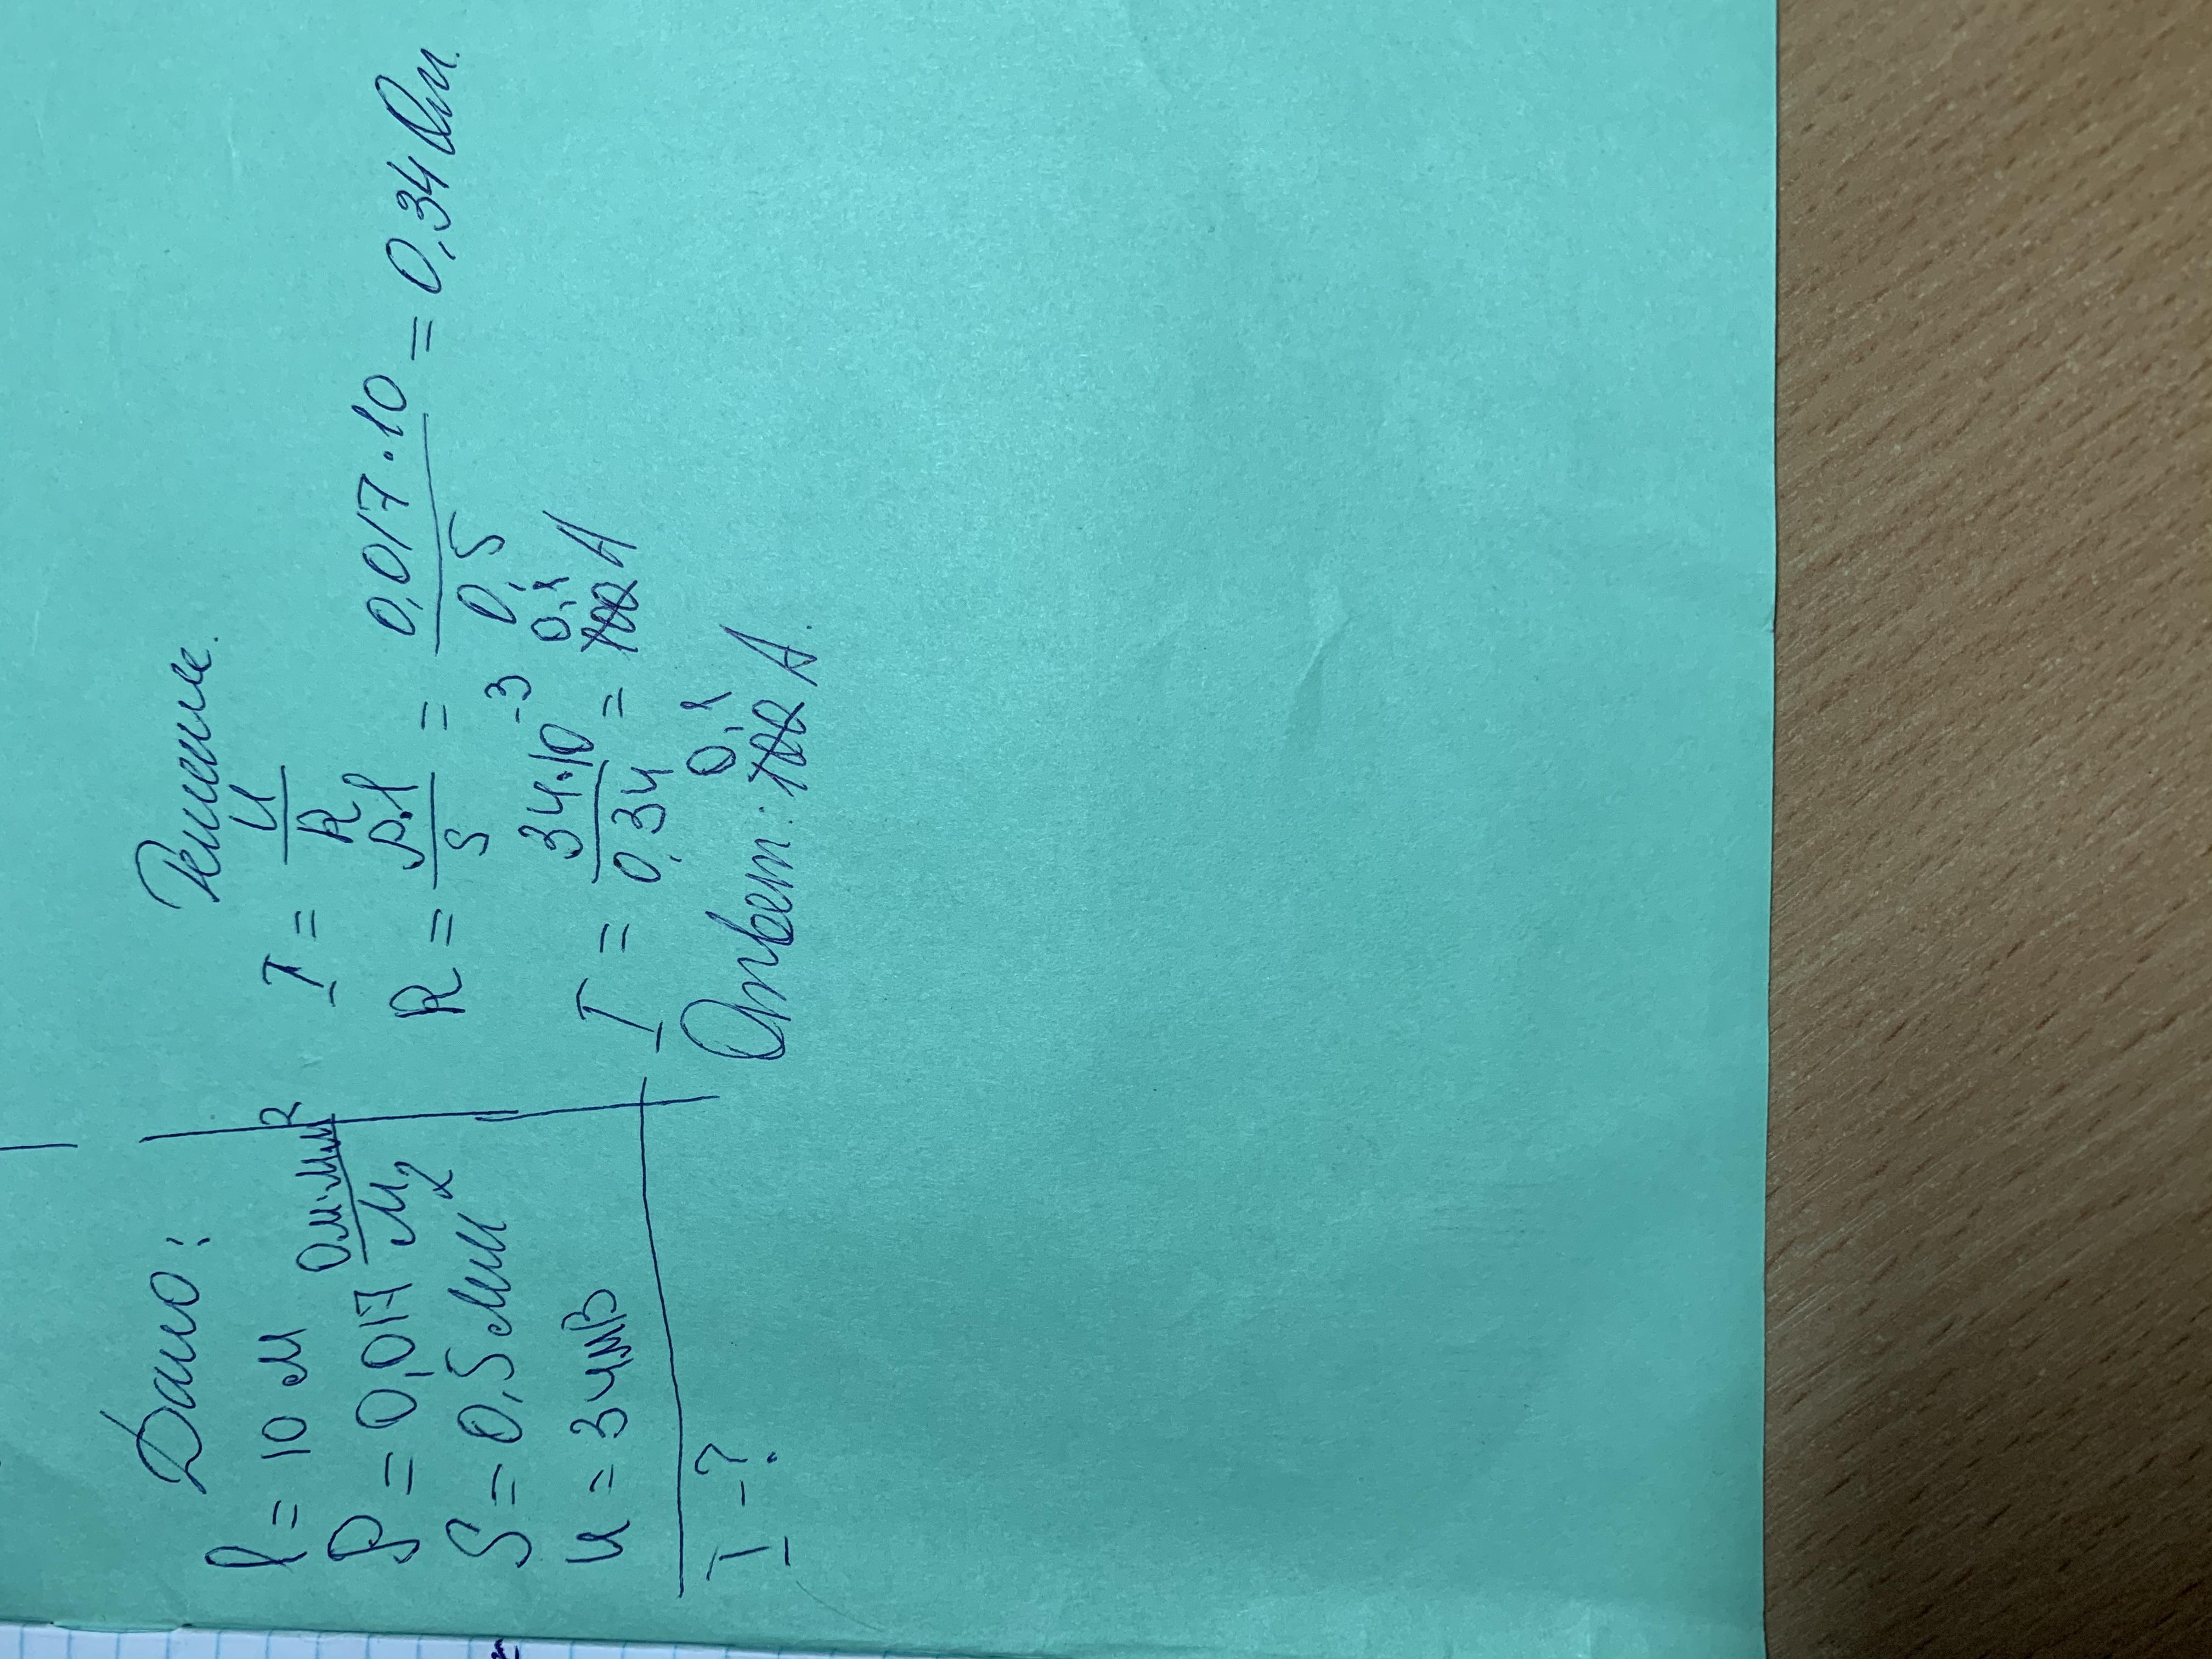 Дано:
l = 10 м
ρ = 0,017 Ом·мм²/м
S = 0,5 мм²
U = 34мВ
I - ?
Решение.
I = U/R
R = ρ·l/S = 0,017·10/0,5 = 0,34 Ом.
I = 34·10⁻³/0,34 = 0,1 A
Ответ: 0,1 A.